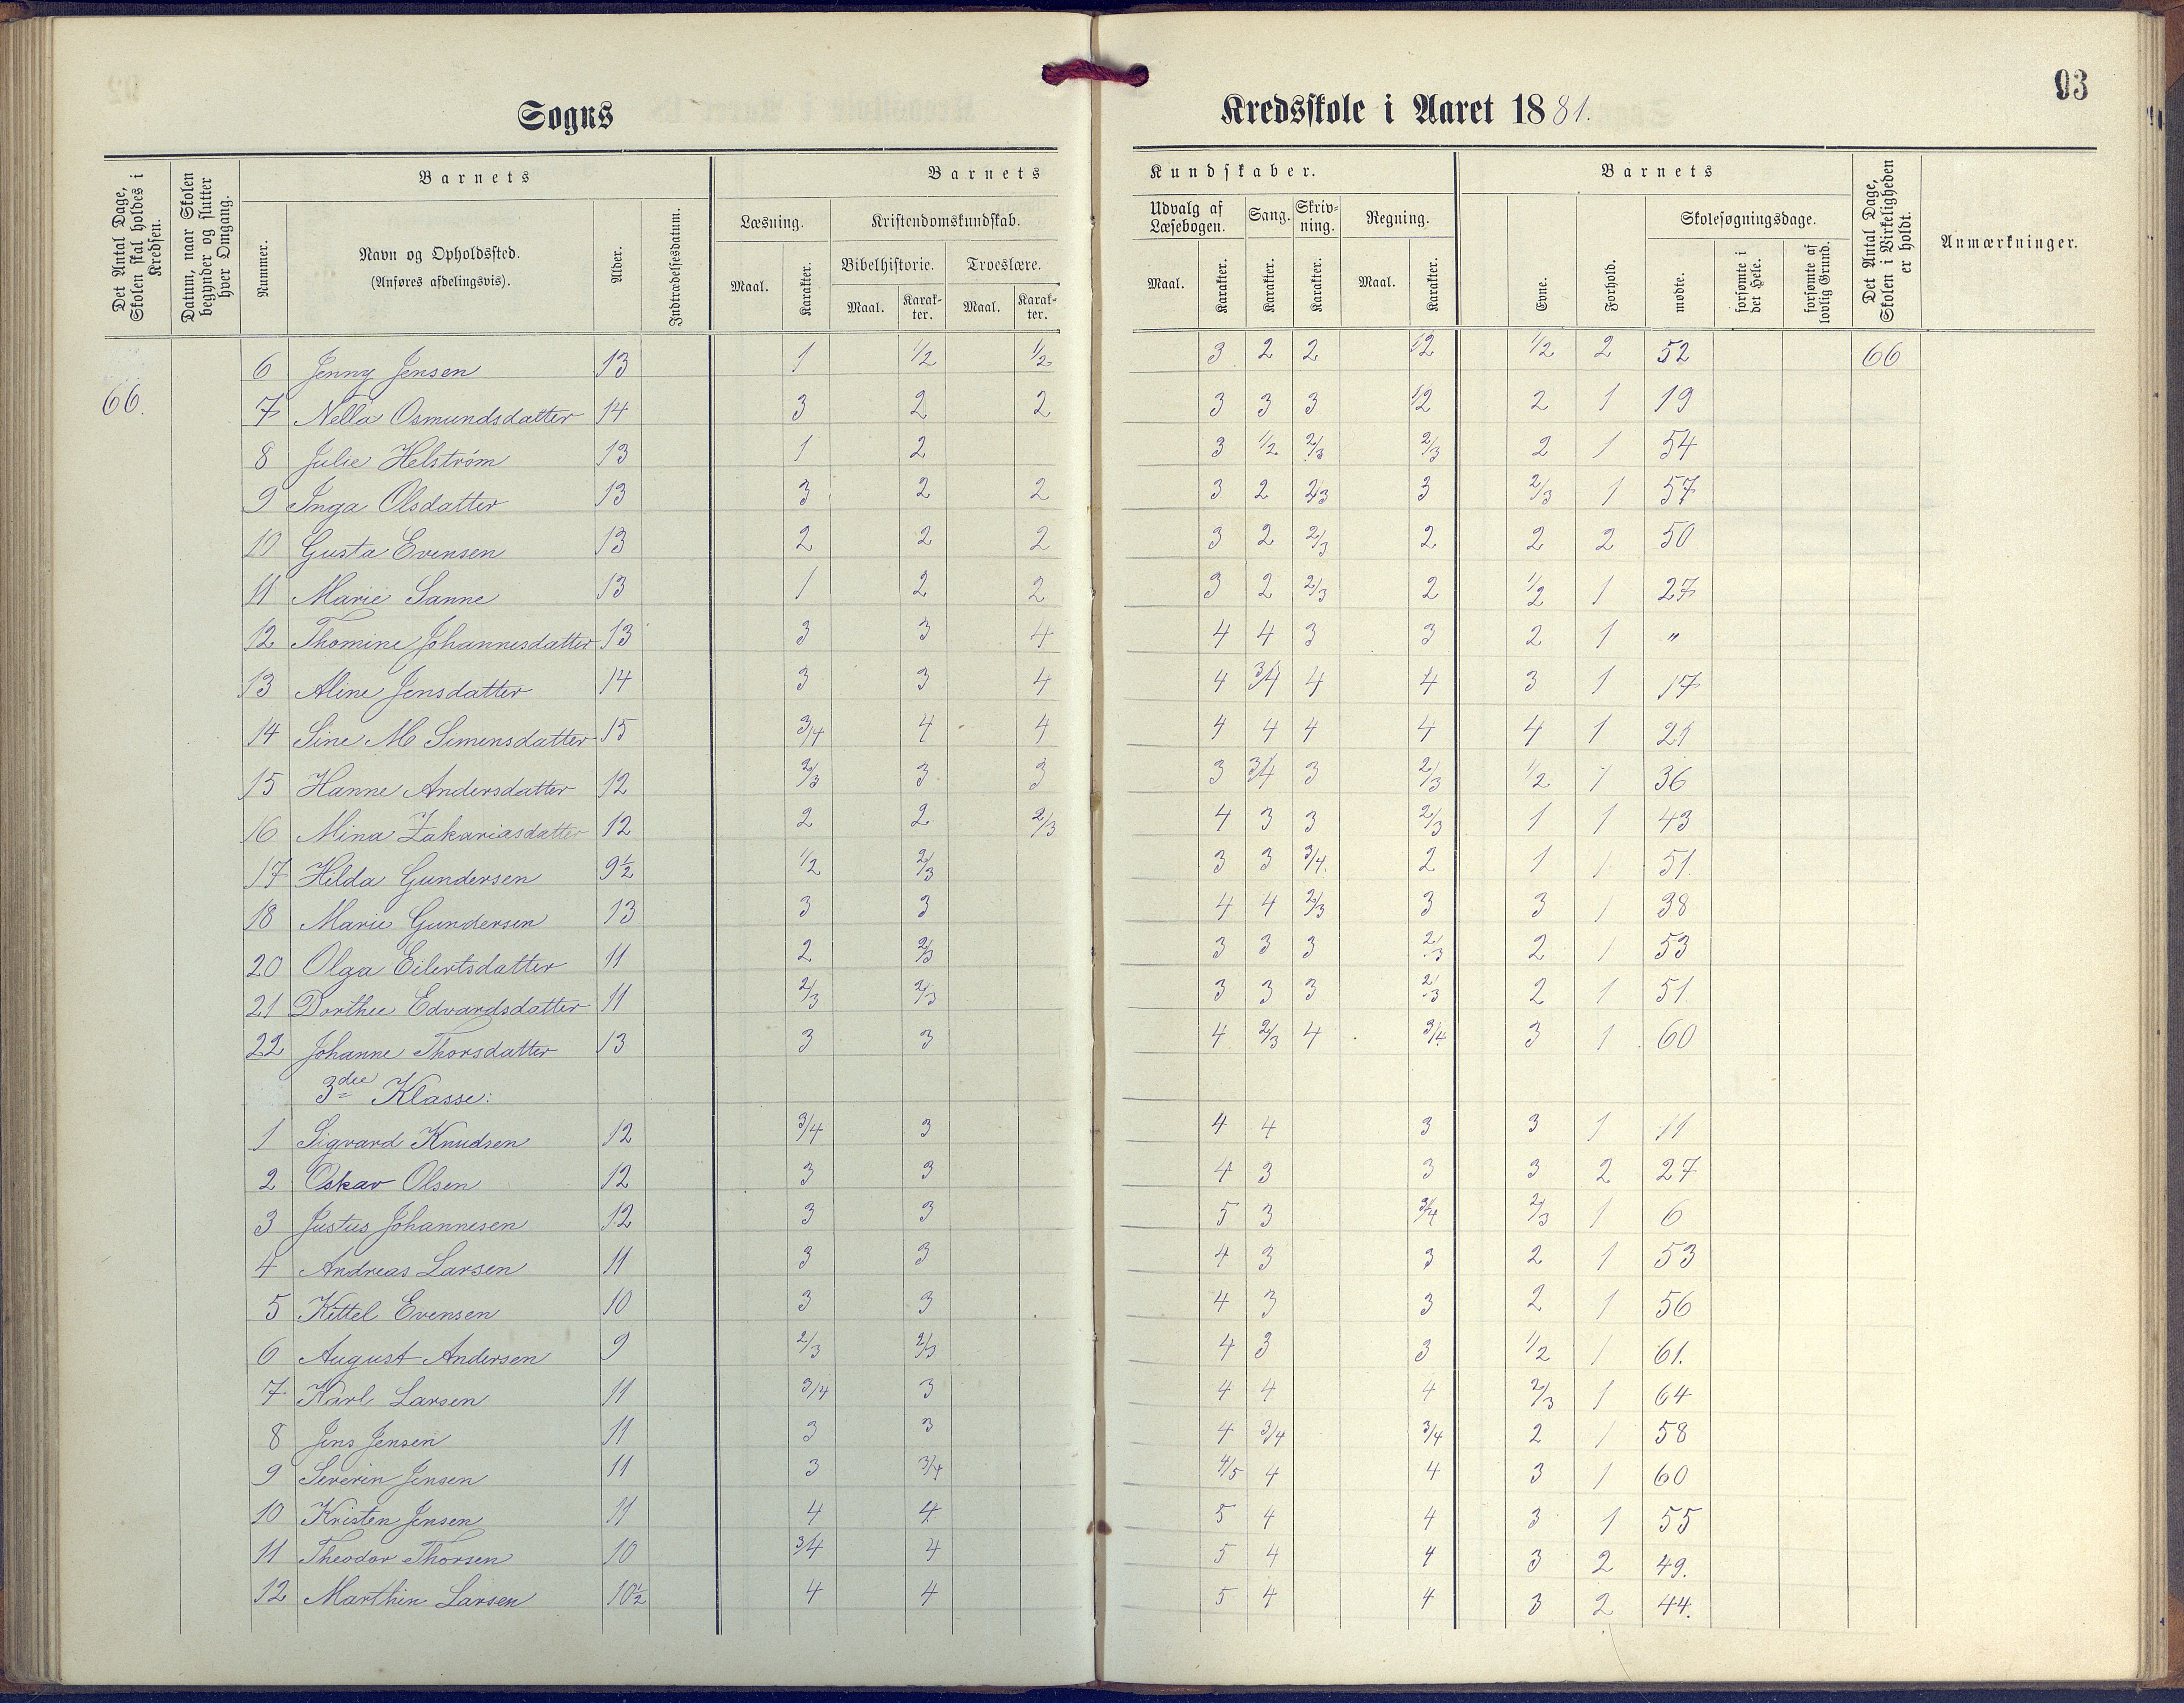 93
Sogns Kredsskole i Aaret 1881.
Det Antal Dage, Skolen skal holdes i Kredsen.
Datum, naar Skolen begynder og slutter hver Omgang.
Barnets
Nummer.
Navn og Opholdssted.
(Anføres afdelingsvis).
Alder.
Indtrædelsesdatum.
Barnets Kundskaber.
Læsning.
Maal. Karakter.
Kristendomskundskab.
Bibelhistorie. Troeslære.
Maal. Karakter. Maal. Karakter.
Udvalg af Læsebogen.
Maal. Karakter.
Sang.
Karakter.
Skrivning.
Karakter.
Regning.
Maal. Karakter.
Barnets
Evne. Forhold.
Skolesøgningsdage.
mødte. forsømte i det Hele. forsømte af lovlig Grund.
Det Antal Dage, Skolen i Virkeligheden er holdt.
Anmærkninger.
6 Jenny Jensen 13 1 1/2 1/2 3 2 2 1/2 1/2 2 52 66
66. 7 Nella Osmundsdatter 14 3 2 2 3 3 3 1/2 2 1 19
8 Julie Helström 13 1 2 3 1/2 2/3 2/3 2 1 54
9 Inga Olsdatter 13 3 2 2 3 2 2/3 3 2/3 1 57
10 Gusta Evensen 13 2 2 2 3 2 2/3 2 2 2 50
11 Marie Sanne 13 1 2 2 3 2 2/3 2 1/2 1 27
12 Thomine Johannesdatter 13 3 3 4 4 4 3 3 2 1 "
13 Aline Jensdatter 14 3 3 4 4 3/4 4 4 3 1 17
14 Sine M Simensdatter 15 3/4 4 4 4 4 4 4 4 1 21
15 Hanne Andersdatter 12 2/3 3 3 3 3/4 3 2/3 1/2 1 36
16 Mina Zakariasdatter 12 2 2 2/3 4 3 3 2/3 1 1 43
17 Hilda Gundersen 9½ 1/2 2/3 3 3 3/4. 2 1 1 51.
18 Marie Gundersen 13 3 3 4 4 2/3 3 3 1 38
20 Olga Eilertsdatter 11 2 2/3 3 3 3 2/3 2 1 53
21 Dorthee Edvardsdatter 11 2/3 2/3 3 3 3 2/3 2 1 51
22 Johanne Thorsdatter 13 3 3 4 2/3 4 3/4 3 1 60
3die Klasse:
1 Sigvard Knudsen 12 3/4 3 4 4 3 3 1 11
2 Oskar Olsen 12 3 3 4 3 3 3 2 27
3 Justus Johannesen 12 3 3 5 3 3/4 2/3 1 6
4 Andreas Larsen 11 3 3 4 3 3 2 1 53
5 Kittel Evensen 10 3 3 4 3 3 2 1 56
6 August Andersen 9 2/3 2/3 4 3 3 1/2 1 61.
7 Karl Larsen 11 3/4 3 4 4 4 2/3 1 64
8 Jens Jensen 11 3 3 4 3/4 3/4 2 1 58
9 Severin Jensen 11 3 3/4 4/5 4 4 3 1 60
10 Kristen Jensen 11 4 4 5 4 4 3 1 55
11 Theodor Thorsen 10 3/4 4 5 4 4 3 2 49.
12 Marthin Larsen 10½ 4 4 5 4 4 3 2 44.